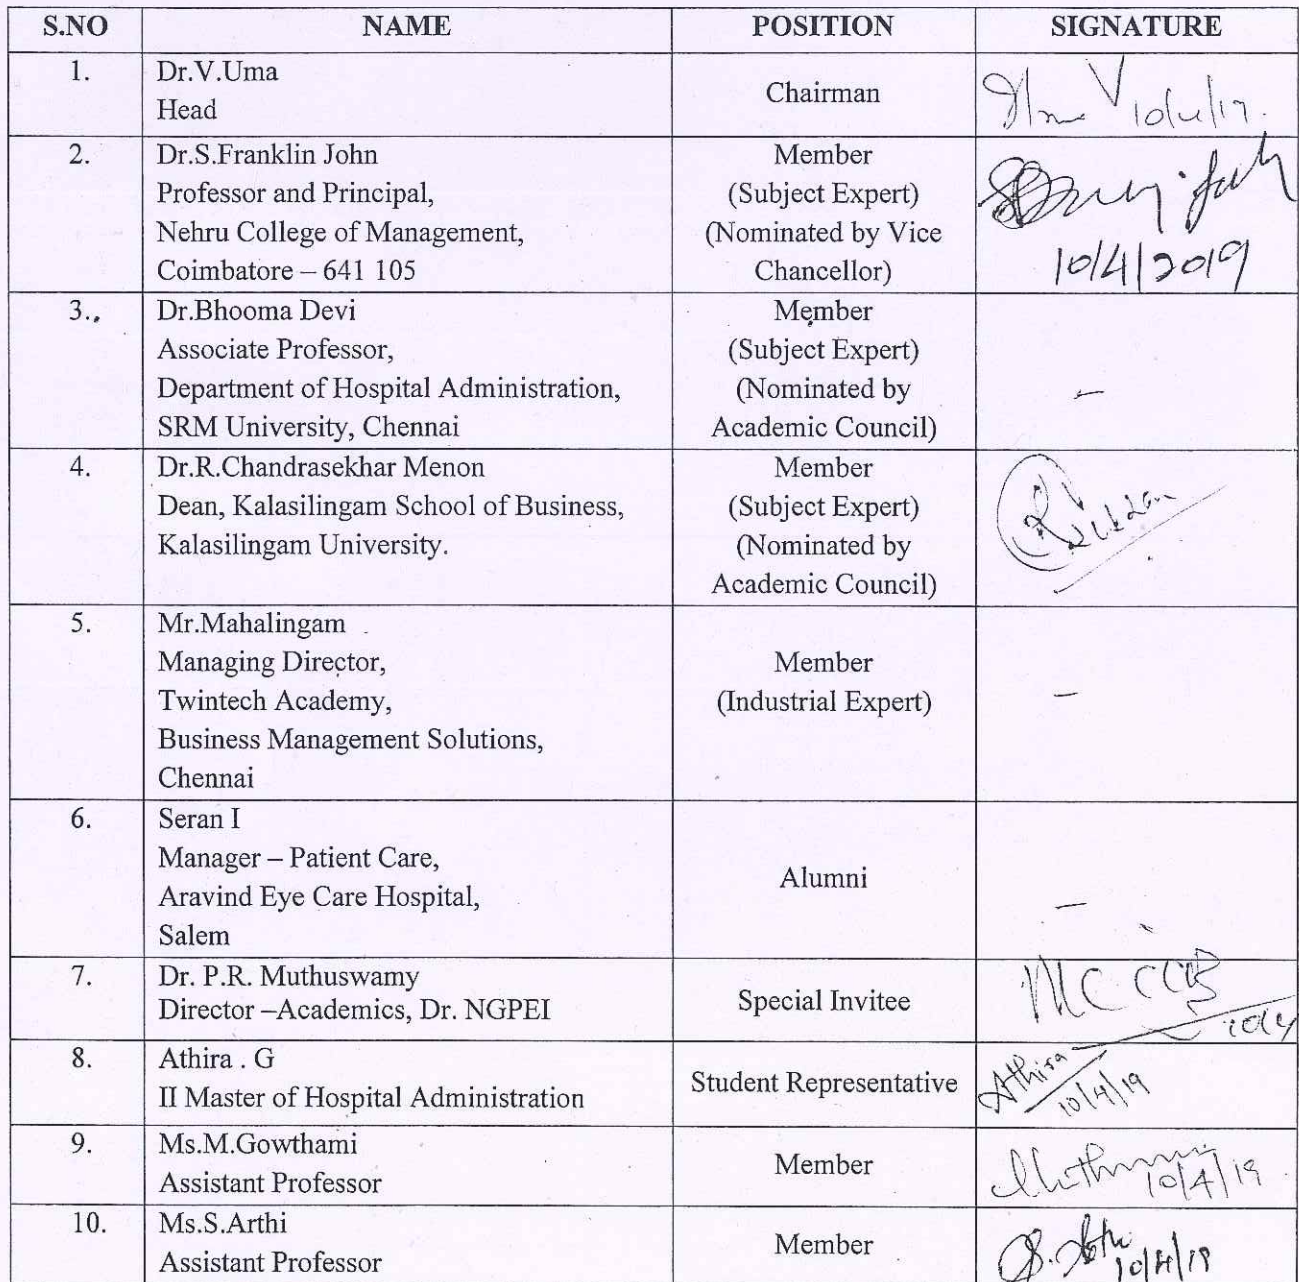 S.NO NAME POSITION SIGNATURE
1. Dr.V.Uma
Head
Chairman
V 10/4/19.
2. Dr.S.Franklin John
Professor and Principal,
Nehru College of Management,
Coimbatore – 641 105
Member
(Subject Expert)
(Nominated by Vice
Chancellor)
10/4/2019
3. Dr.Bhooma Devi
Associate Professor,
Department of Hospital Administration,
SRM University, Chennai
Member
(Subject Expert)
(Nominated by
Academic Council)
–
4. Dr.R.Chandrasekhar Menon
Dean, Kalasilingam School of Business,
Kalasilingam University.
Member
(Subject Expert)
(Nominated by
Academic Council)
5. Mr.Mahalingam
Managing Director,
Twintech Academy,
Business Management Solutions,
Chennai
Member
(Industrial Expert)
–
6. Seran I
Manager – Patient Care,
Aravind Eye Care Hospital,
Salem
Alumni
–
7. Dr. P.R. Muthuswamy
Director –Academics, Dr. NGPEI
Special Invitee
10/4
8. Athira . G
II Master of Hospital Administration
Student Representative
Athira
10/4/19
9. Ms.M.Gowthami
Assistant Professor
Member
10/4/19
10. Ms.S.Arthi
Assistant Professor
Member
10/4/19